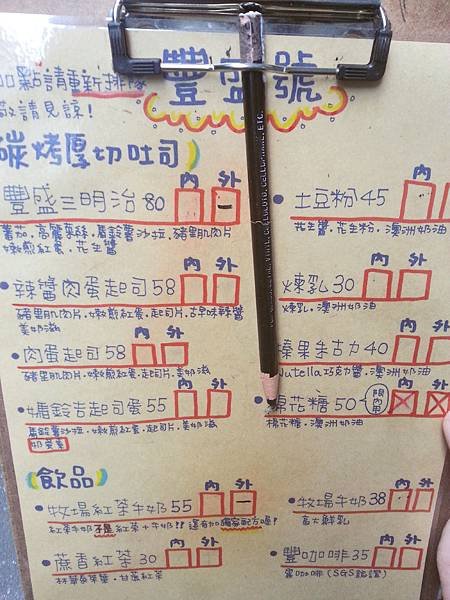 加點請重新排隊
敬請見諒!
豐盛號
碳烤厚切吐司
內 外
豐盛三明治 80
番茄.高麗菜絲.馬鈴薯沙拉.豬里肌肉片
嫩煎紅蛋.花生醬
內 外
土豆粉 45
花生醬.花生粉.澳洲奶油
內 外
辣醬肉蛋起司 58
豬里肌肉片.嫩煎紅蛋.起司片.古早味辣醬
美奶滋
內 外
煉乳 30
煉乳.澳洲奶油
內 外
肉蛋起司 58
豬里肌肉片.嫩煎紅蛋.起司片.美奶滋
內 外
榛果朱古力 40
Nutella巧克力醬.澳洲奶油
內 外
馬鈴吉起司蛋 55
馬鈴薯沙拉.嫩煎紅蛋.起司片.美奶滋
奶蛋素
限內用
內 外
棉花糖 50
棉花糖.澳洲奶油
飲品
內 外
牧場紅茶牛奶 55
紅茶牛奶不是紅茶+牛奶!! 還有加獨家配方喔!
內 外
牧場牛奶 38
內 外
蔗香紅茶 30
內 外
豐咖啡 35
黑咖啡(SGS認證)
CELLOPHANE, ETC.